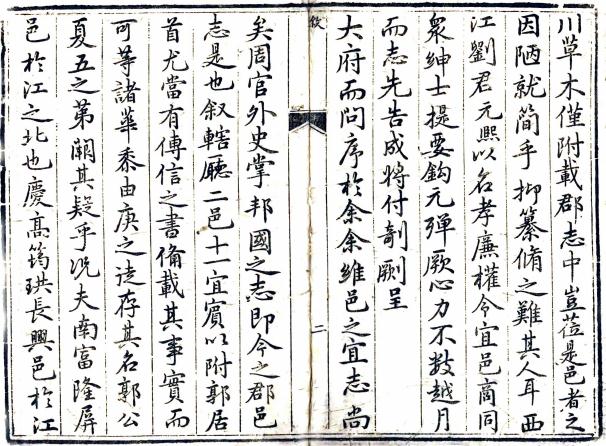 川草木僅附載郡志中豈莅是邑者之
因陋就簡乎抑纂脩之難其人耳西
江劉君元熙以名孝廉權令宜邑商同
衆紳士提要鈎元殫厥心力不數越月
而志先告成將付剞劂呈
大府而問序於余余維邑之宜志尚
敘
二
矣周官外史掌邦國之志即今之郡邑
志是也叙轄廳二邑十一宜賓以附郭居
首尤當有傳信之書俻載其事實而
可等諸華黍由庚之徒存其名郭公
夏五之第闕其疑乎况夫南富隆屏
邑於江之北也慶高筠珙長興邑於江